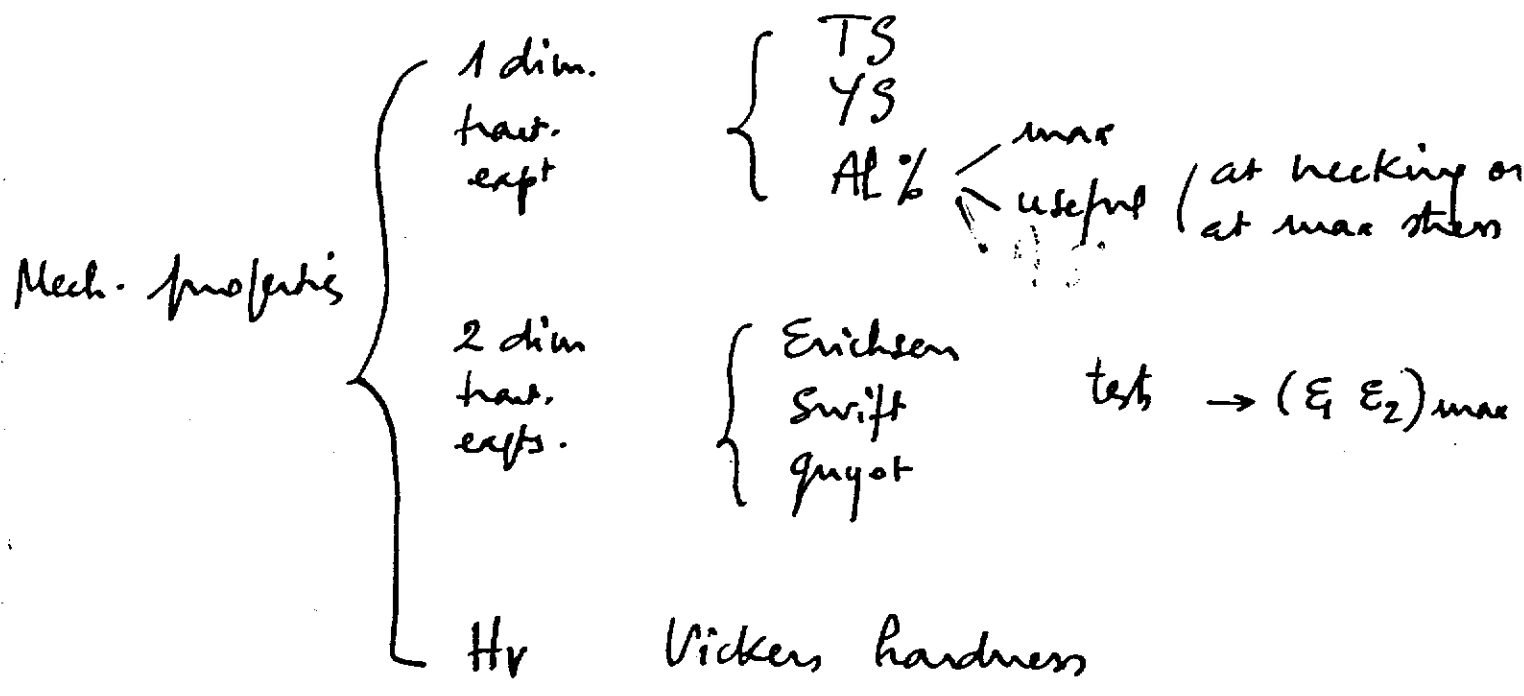 Mech. properties
1 dim.
tract.
expt
TS
YS
Al %
max
useful
at necking or
at max stress
2 dim
tract.
expts.
Erichsen
Swift
guyot
tests → (ε1 ε2) max
Hv Vickers hardness